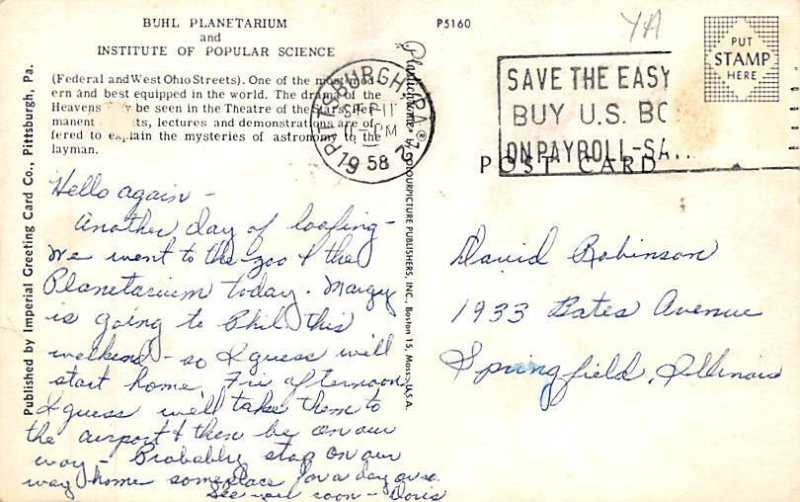 BUHL PLANETARIUM
and
INSTITUTE OF POPULAR SCIENCE
(Federal and West Ohio Streets). One of the most mod-
ern and best equipped in the world. The drama of the
Heavens be seen in the Theatre of the Stars. Per-
manent ts, lectures and demonstrations are of-
fered to explain the mysteries of astronomy to the
layman.
P5160
YA
PUT
STAMP
HERE
PITTSBURGH, PA.
SEP 11
PM
1958
2
SAVE THE EASY
BUY U.S. BO
ON PAYROLL-SA
POST CARD
Published by Imperial Greeting Card Co., Pittsburgh, Pa.
Plastichrome ® by COLOURPICTURE PUBLISHERS, INC., Boston 15, Mass., U.S.A.
Hello again -
Another day of loafing -
We went to the zoo & the
Planetarium today. Margy
is going to Phil this
weekend - so I guess we'll
start home Fri afternoon
I guess we'll take them to
the airport & then be on our
way - Probably stop on our
way home someplace for a day or so.
See you soon - Doris
David Robinson
1933 Bates Avenue
Springfield, Illinois